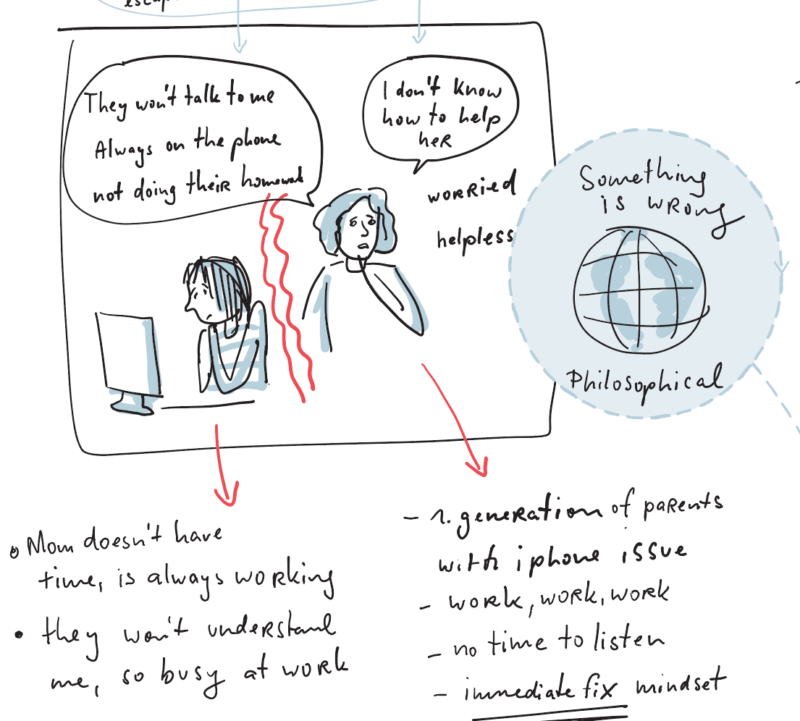 They won't talk to me
Always on the phone
not doing their homework
I don't know
how to help
her
worried
helpless
Something
is wrong
Philosophical
Mom doesn't have
time, is always working
they won't understand
me, so busy at work
- 1. generation of parents
with iphone issue
- work, work, work
- no time to listen
- immediate fix mindset